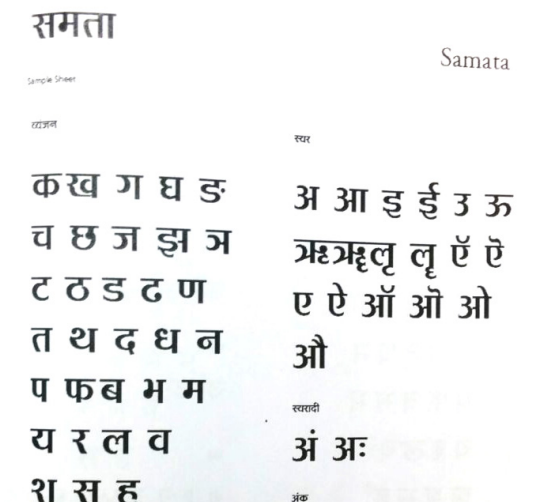 समता
Samata
Sample Sheet
व्यंजन
क ख ग घ ङ
च छ ज झ ञ
ट ठ ड ढ ण
त थ द ध न
प फ ब भ म
य र ल व
श स ह
स्वर
अ आ इ ई उ ऊ
ऋ ॠ ऌ ॡ ऍ ऎ
ए ऐ ऑ ऒ ओ
औ
स्वरादी
अं अः
अंक